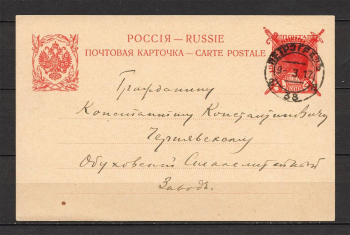 РОССІЯ — RUSSIE
ПОЧТОВАЯ КАРТОЧКА — CARTE POSTALE
ПЕТРОГРАДЪ
9-3.17
38
Гражданину
Константину Константиновичу
Чернявскому
Обуховский Сталелитейный
Заводъ.